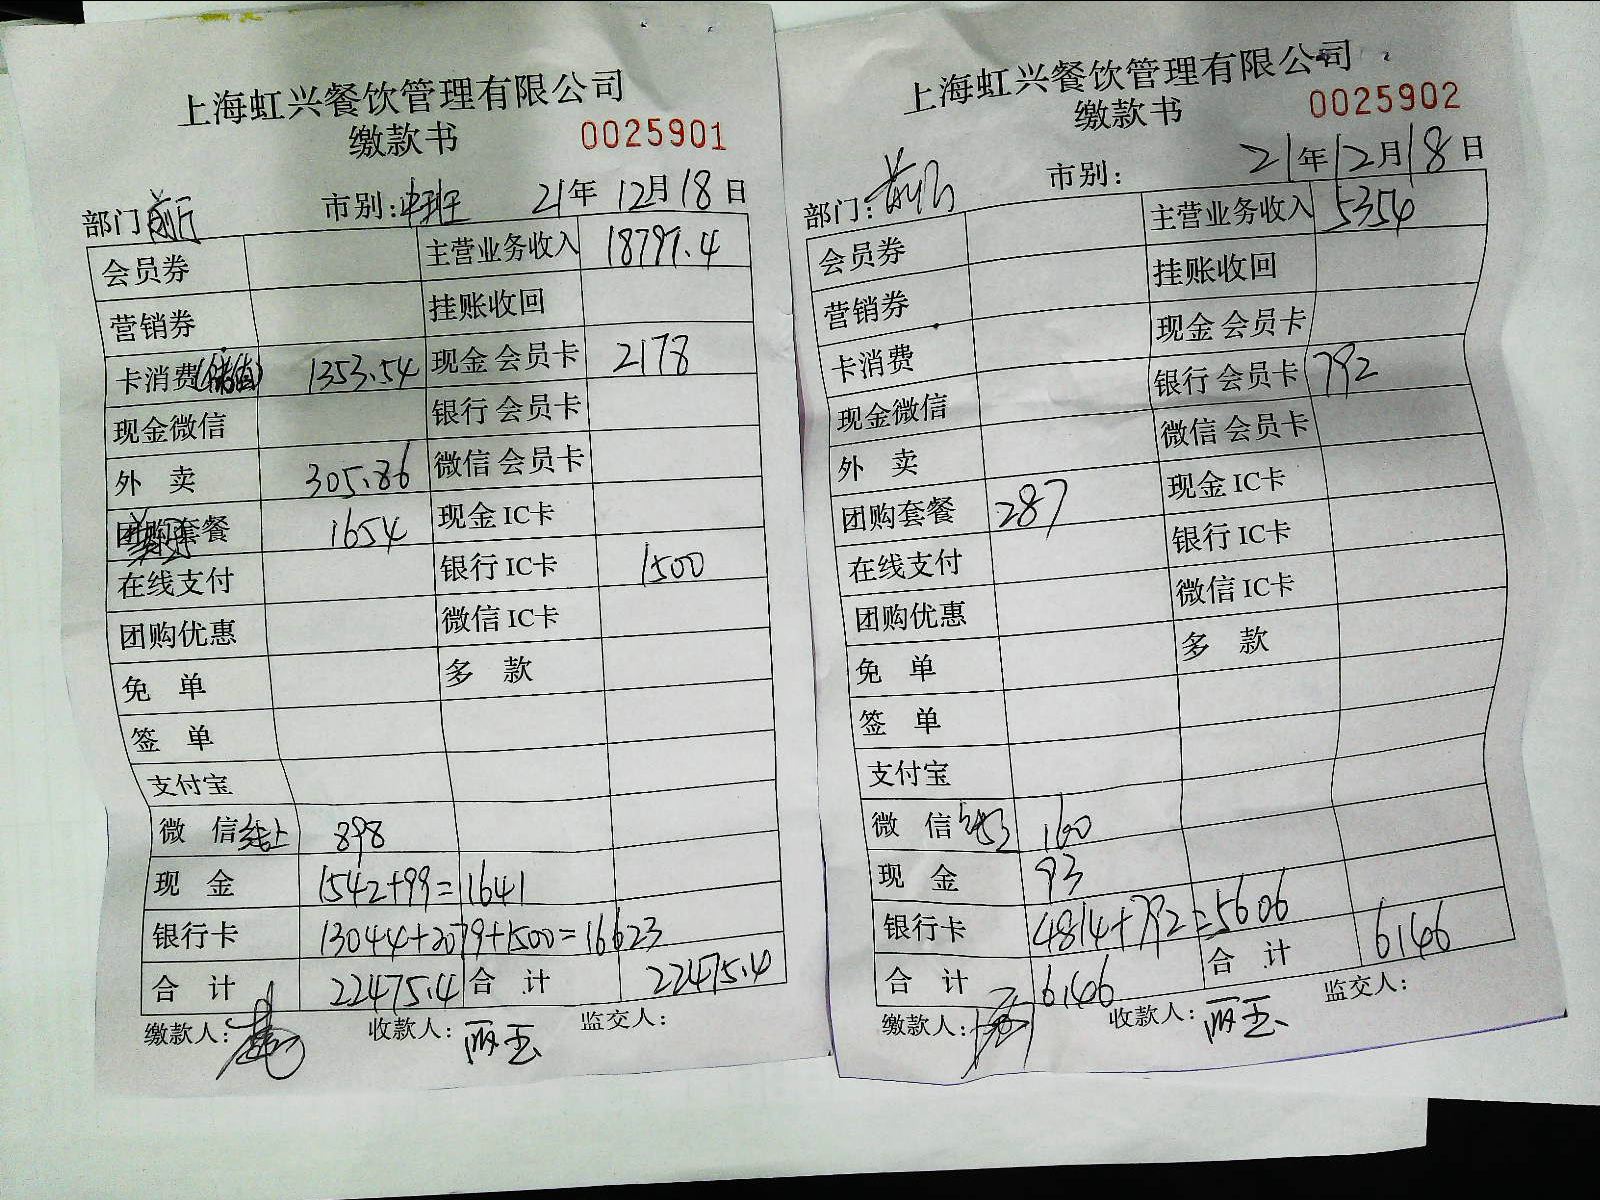 上海虹兴餐饮管理有限公司
缴款书 0025901
部门 前厅 市别: 中班 21年 12月18日
会员券 主营业务收入 18797.4
营销券 挂账收回
卡消费(储值) 1353.54 现金会员卡 2178
现金微信 银行会员卡
外 卖 305.86 微信会员卡
团购套餐 1654 现金IC卡
在线支付 银行IC卡 1500
团购优惠 微信IC卡
免 单 多 款
签 单
支付宝
微 信 线上 898
现 金 1542+99=1641
银行卡 13044+2079+1500=16623
合 计 22475.4 合 计 22475.4
缴款人: 收款人: 丽玉 监交人:
上海虹兴餐饮管理有限公司
缴款书 0025902
部门: 前厅 市别: 21年12月18日
会员券 主营业务收入 5354
营销券 挂账收回
卡消费 现金会员卡
现金微信 银行会员卡 792
外 卖 微信会员卡
团购套餐 287 现金IC卡
在线支付 银行IC卡
团购优惠 微信IC卡
免 单 多 款
签 单
支付宝
微 信 160
现 金 93
银行卡 4814+792=5606
合 计 6146 合 计 6146
缴款人: 收款人: 丽玉 监交人: